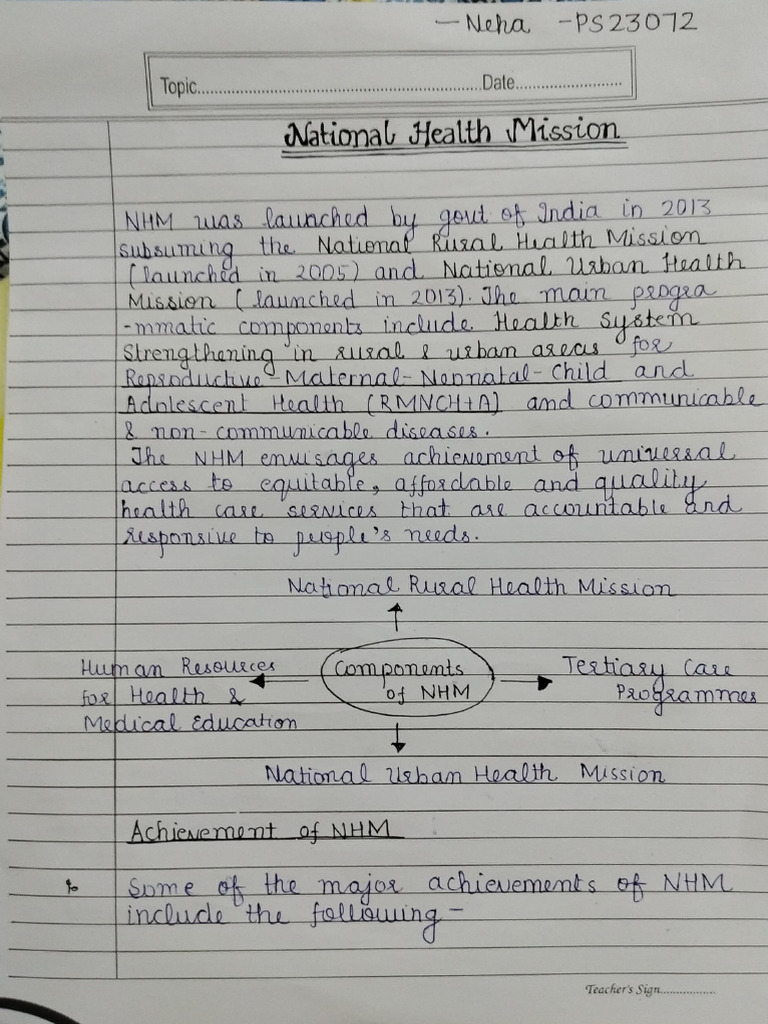 — Neha - PS23072
Topic..............................................................Date........................
National Health Mission
NHM was launched by govt of India in 2013
subsuming the National Rural Health Mission
(launched in 2005) and National Urban Health
Mission (launched in 2013). The main progra
-mmatic components include Health System
Strengthening in rural & urban areas for
Reproductive-Maternal-Neonatal-Child and
Adolescent Health (RMNCH+A) and communicable
& non-communicable diseases.
The NHM envisages achievement of universal
access to equitable, affordable and quality
health care services that are accountable and
responsive to people's needs.
National Rural Health Mission
Human Resources
for Health &
Medical Education
Components
of NHM
Tertiary Care
Programmes
National Urban Health Mission
Achievement of NHM
Some of the major achievements of NHM
include the following -
Teacher's Sign.................